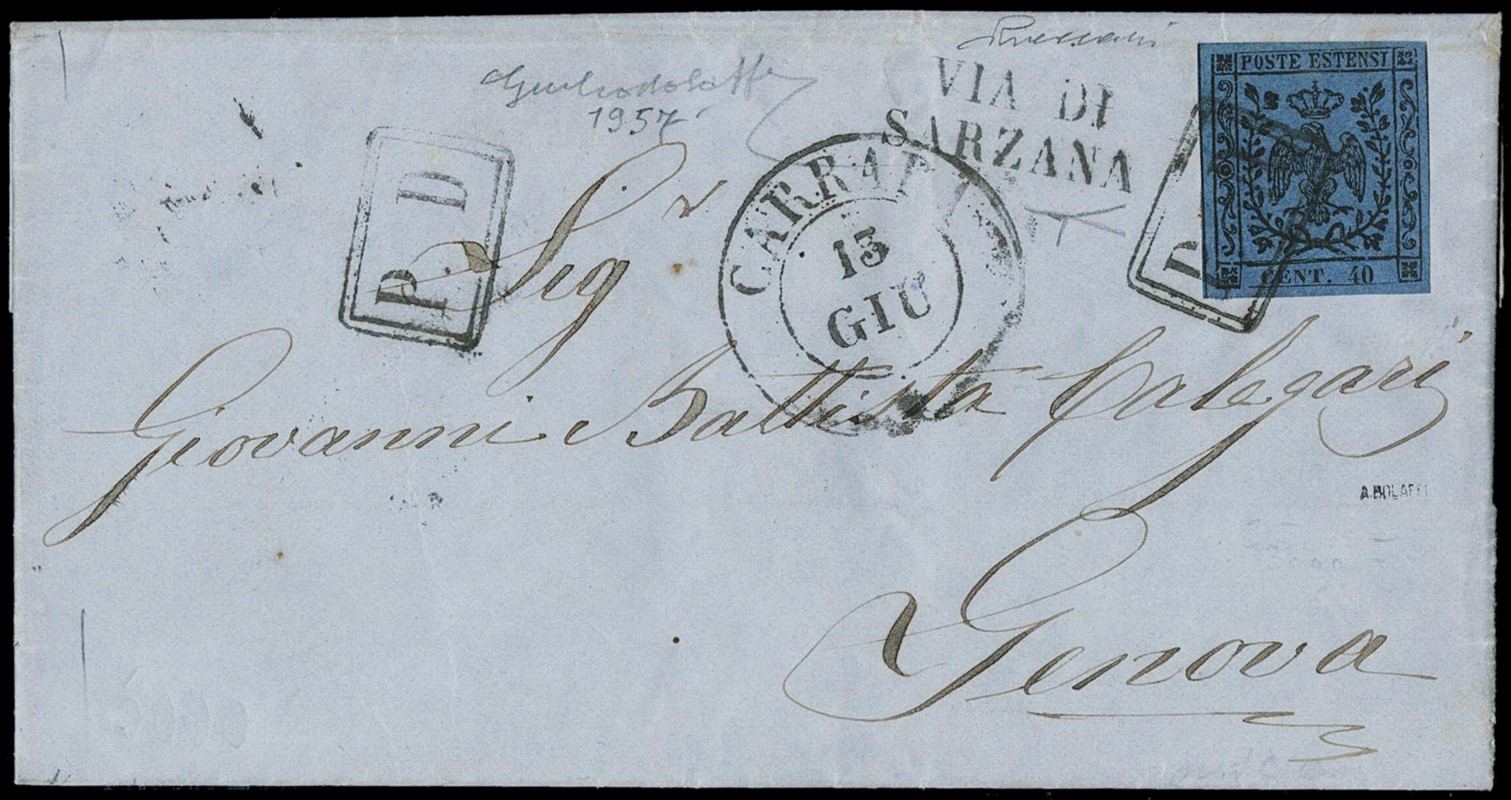 1957
VIA DI
SARZANA
POSTE ESTENSI
CENT. 40
P. D
CARRARA
13
GIU
P
Sigr
Giovanni Battista Calegari
A. BOLAFFI
Genova